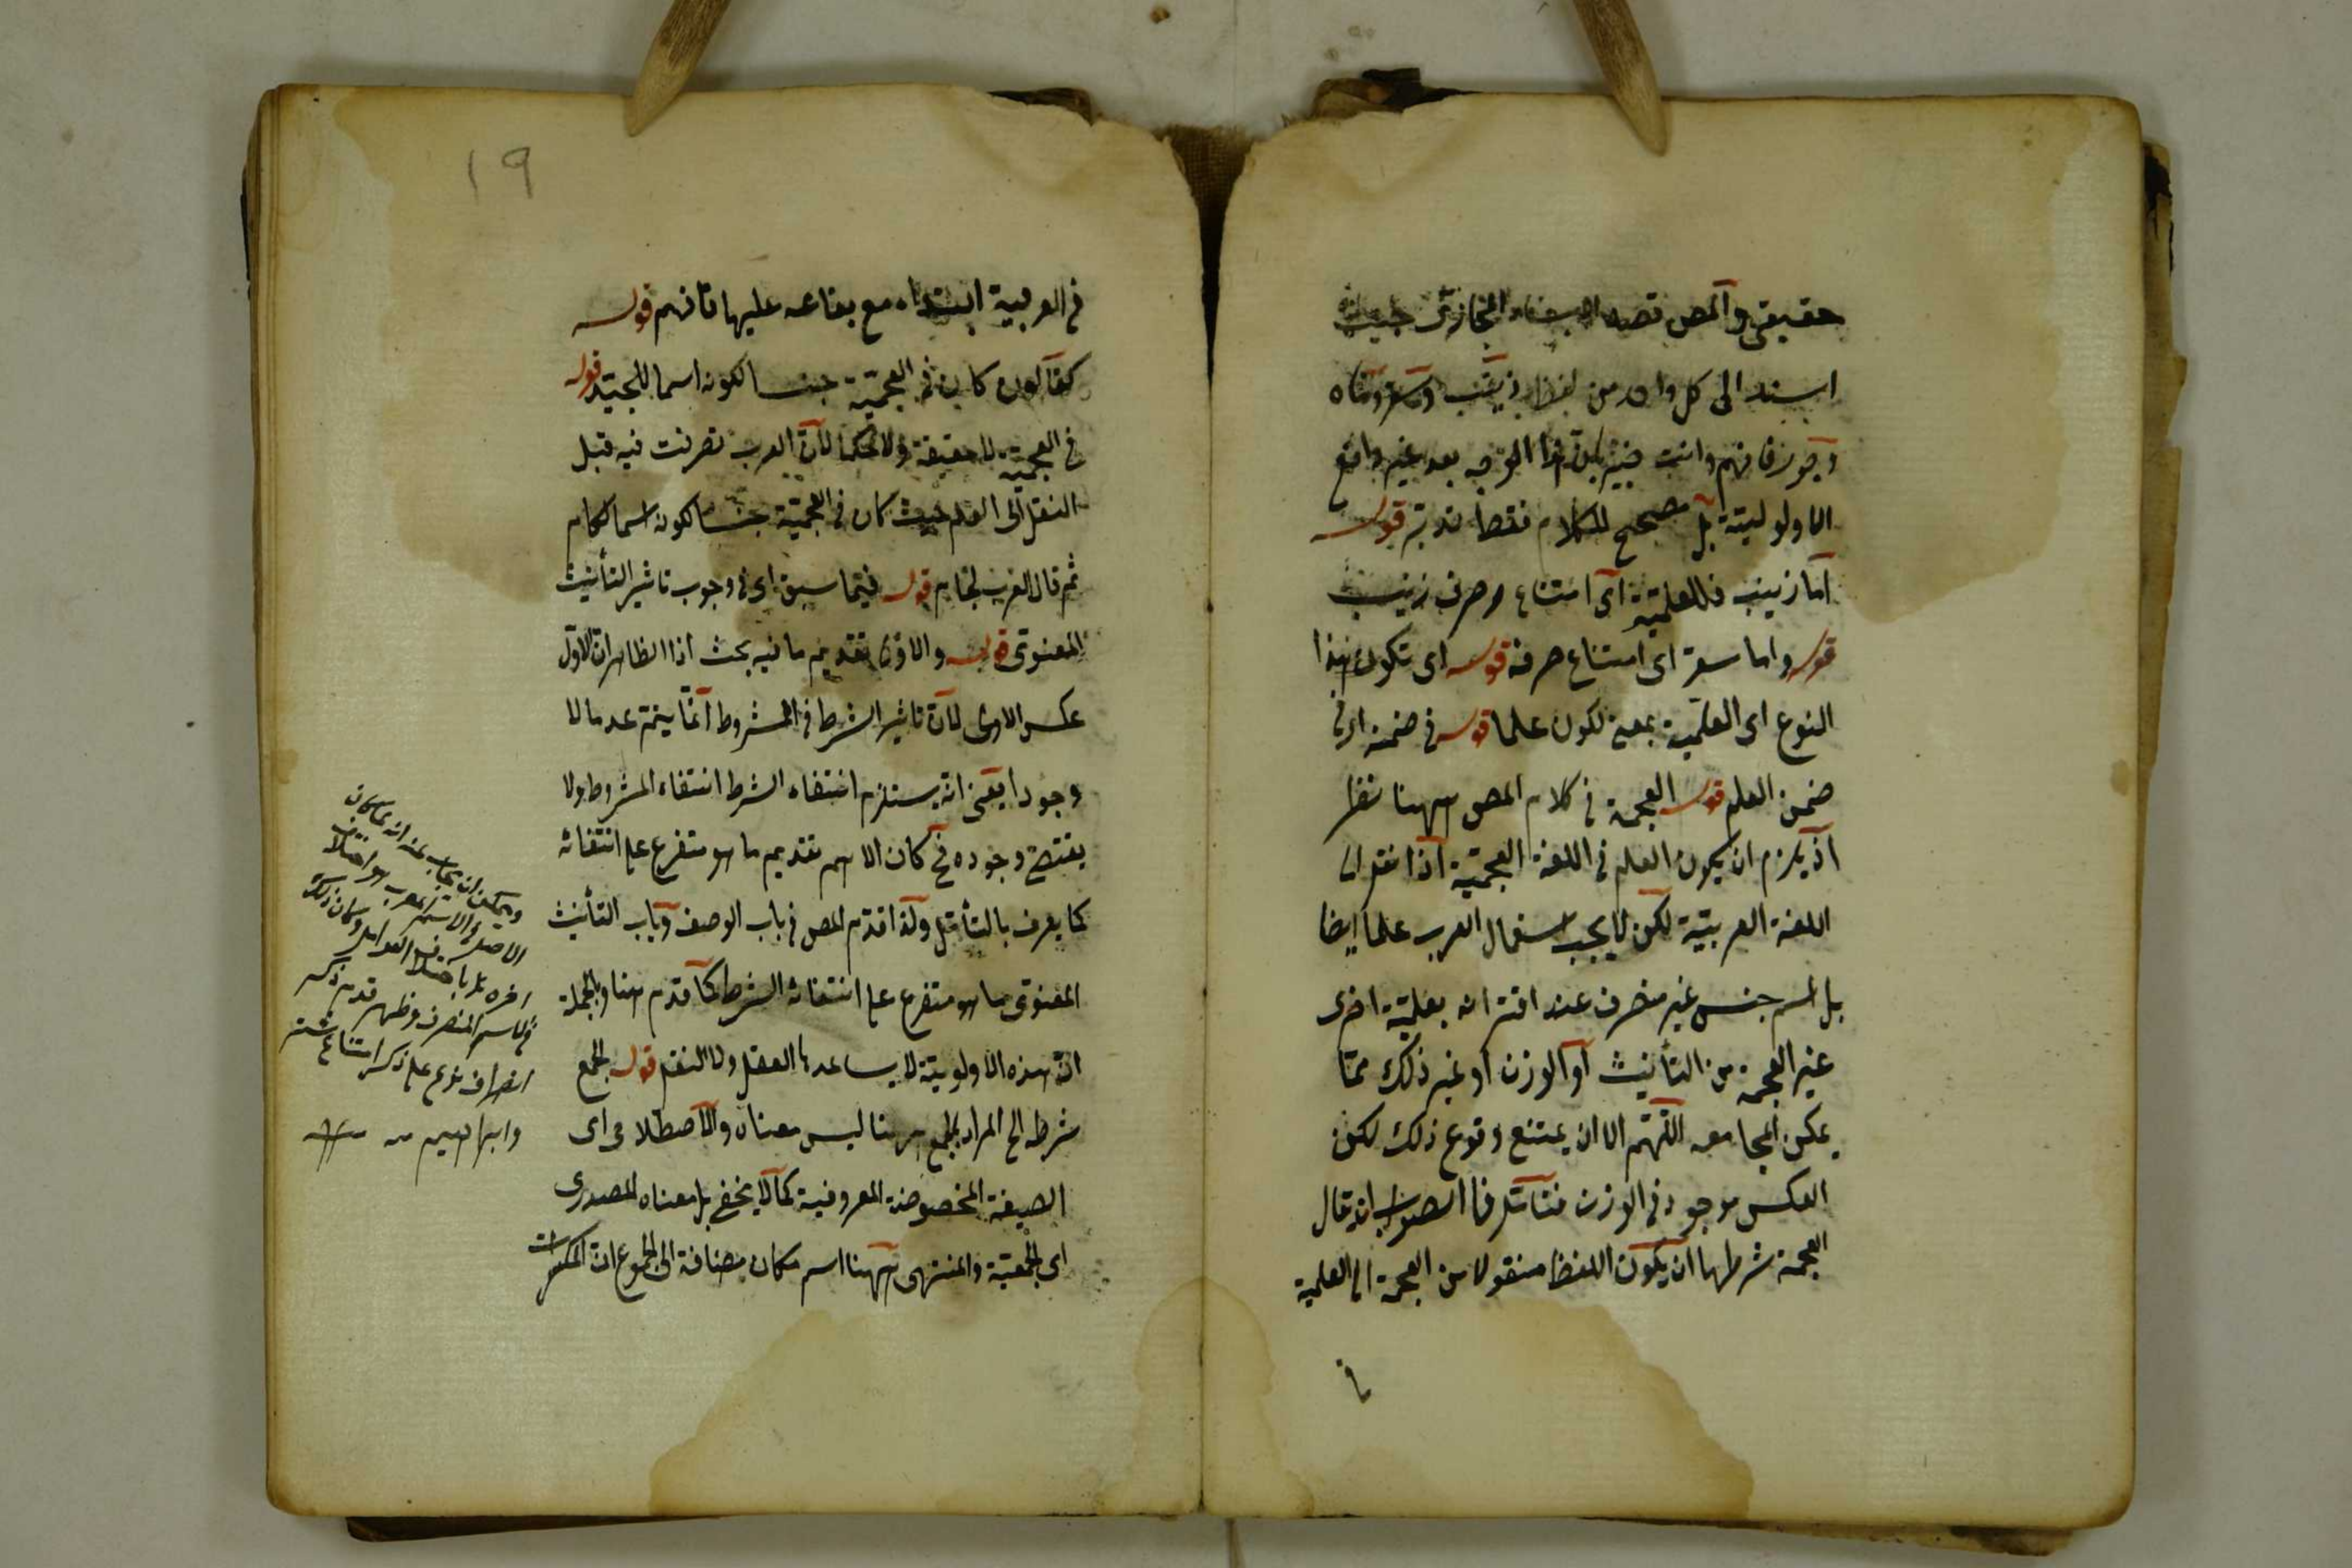 حقيقى والمص قصد الاسناد المجازى حيث
اسند الى كل واحد من لفظ زينب وسقر وماه
وجور فافهم وانت خبير بان هذا الوجه بعد غير دافع
الاولوية بل مصحح للكلام فقط تدبر قوله
اما زينب فللعلمية اى امتناع صرف زينب
قوله واما سقر اى امتناع صرفه قوله اى تكون هذا
النوع اى العلمية بمعنى لكون علما قوله فى ضمنه اى فى
ضمن العلم قوله العجمة فى كلام المص ههنا نظر
اذ يلزم ان يكون العلم فى اللغة العجمية اذا نقل الى
اللغة العربية لكن لا يجب استعمال العرب علما ايضا
بل اسم جنس غير منصرف عند اقترانه بعلية اخرى
غير العجمة من التأنيث او الوزن او غير ذلك مما
يمكن المجامعه اللهم الا ان يمتنع وقوع ذلك لكن
العكس موجود فى الوزن فتأمل فا الصواب ان قال
العجمة شرطها ان يكون اللفظ منقولا من العجمة الى العلمية
فى
١٩
فى العربية ابتداء مع بقاعه عليها فافهم قوله
كقالون كان فى العجمية جنسا لكونه اسما للجيد قوله
فى العجمية لا حقيقة ولا حكما لان العرب تصرفت فيه قبل
النقل الى العلم حيث كان فى العجمية جنسا لكونه اسما لكام
ثم قال العرب لجام قوله فيما سبق اى فى وجوب تاثير التأنيث
المعنوى قوله والاولى تقديم ما فيه بحث اذا الظاهر ان الاول
عكس الاولى لان تاثير الشرط فى المشروط انما يتم عدما لا
وجودا يعنى انه يستلزم انتفاء الشرط انتفاء المشروط ولا
يقتضى وجوده فح كان الاهم تقديم ما هو متفرع على انتفائه
كما يعرف بالتأمل ولذا قدم المص فى باب الوصف وباب التأنيث
المعنوى ما هو متفرع على انتفائه الشرط كما قدم هنا وبالجملة
ان هذه الاولوية لا يساعدها العقل ولا النقل قوله الجمع
شرطه الخ المراد بالجمع ههنا ليس معناه والاصطلاحى اى
الصيغة المخصوصة المعروفية كما لا يخفى بل معناه المصدرى
اى الجمعية والمنتهى ههنا اسم مكان مضافة الى الجموع ان المكسرات
ويمكن ان يجاب عنه انه لما كان
الاصل فى الاسم المعرب هو اختلاف
اخره باختلاف العوامل وكان ذلك
فى الاسم المنصرف وظهر قدم ذكر
انصراف نوح على ذكر امتناع شتر
وابراهيم